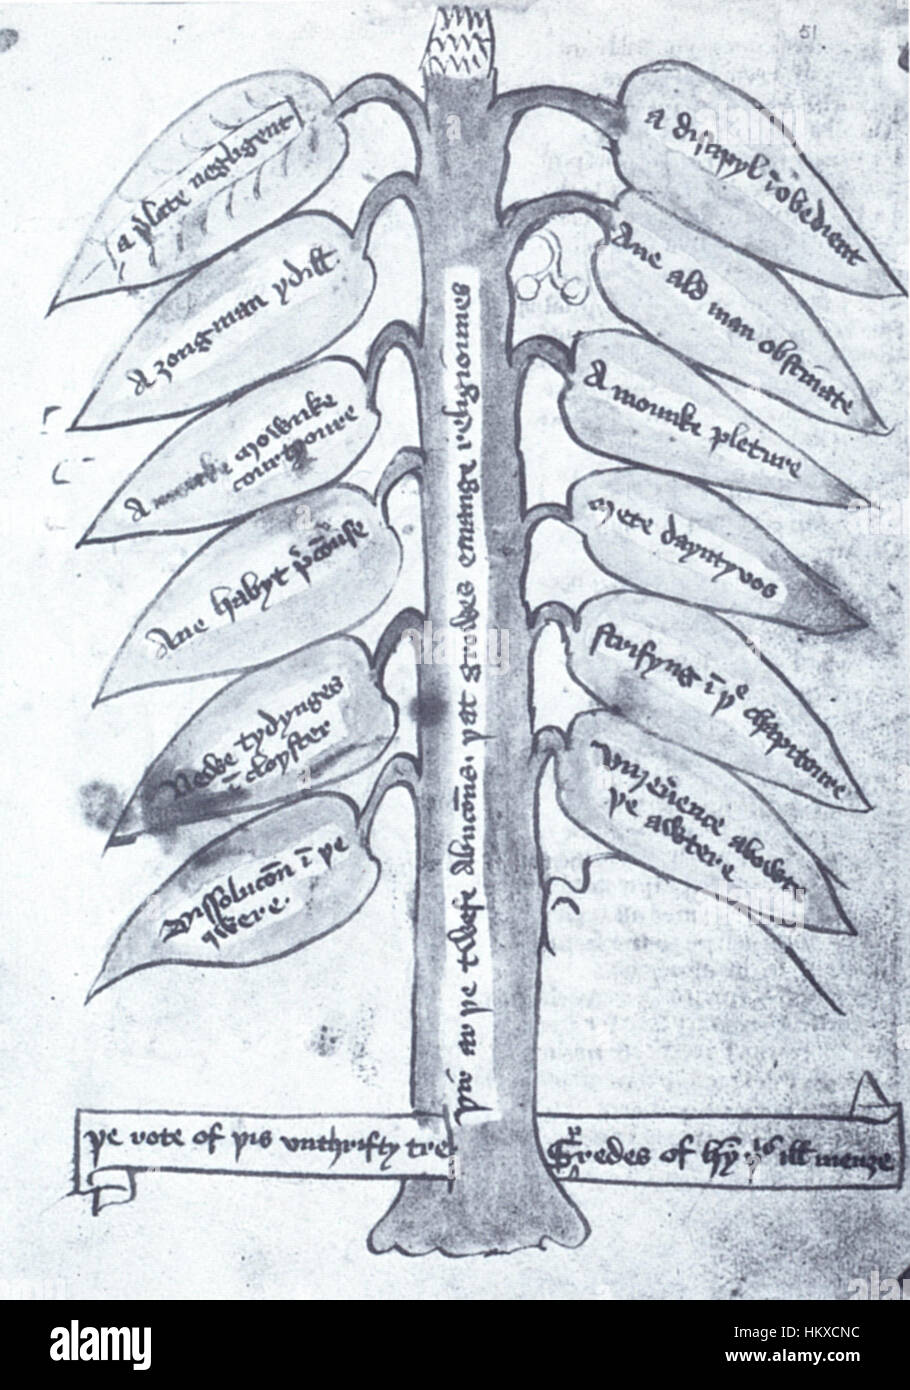 51
a plate negligent
A ȝongman ydill
A monke Mownke
courtyoure
Ane habyt p̄cōuse
Newe tydynges
ī cloyster
Dissolucōn ī þe
qwere.
a discipyl īobedient
Ane ald man obstinate
A mounke pleture
Mete dayntyvos
stryfyng ī þe chapitoure
vnreūence abowt
þe awtere
þir ar þe twelfe abucōns. þat growes emange religiounes
þe rote of þis vnthrifty tre
Growes of
ill menȝe
alamy
Image ID: HKXCNC
www.alamy.com